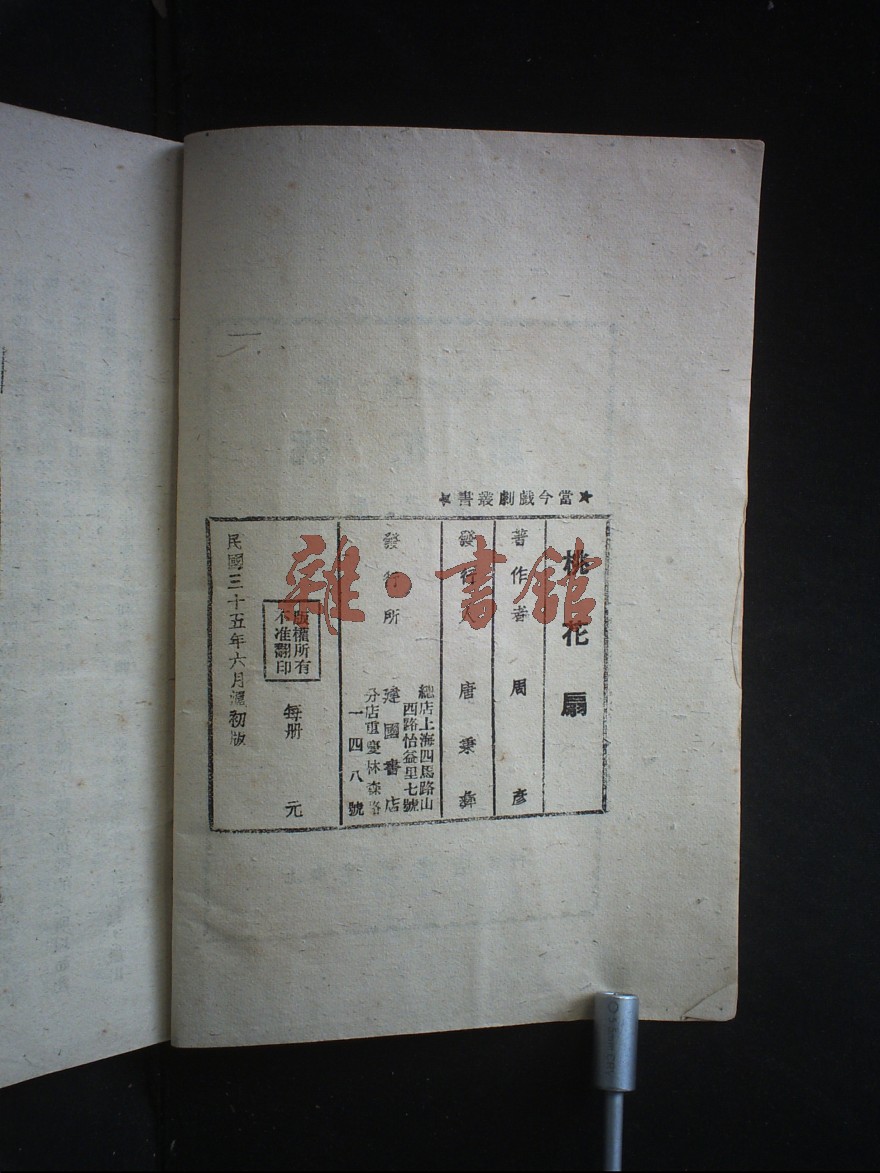 ★當今戲劇叢書★
桃花扇
著作者 周彥
發行人 唐秉彝
發行所
總店上海四馬路山
西路怡益里七號
建國書店
分店重慶林森路
一四八號
版權所有
不准翻印
每册 元
民國三十五年六月滬初版
雜·書館